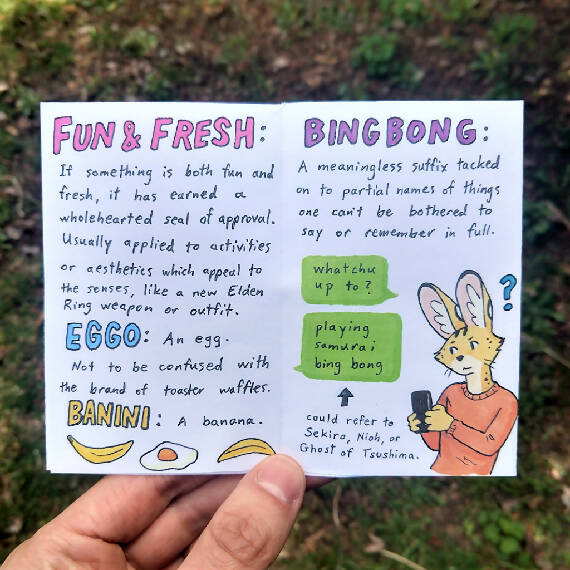 FUN & FRESH:
If something is both fun and
fresh, it has earned a
wholehearted seal of approval.
Usually applied to activities
or aesthetics which appeal to
the senses, like a new Elden
Ring weapon or outfit.
EGGO: An egg.
Not to be confused with
the brand of toaster waffles.
BANINI: A banana.
BINGBONG:
A meaningless suffix tacked
on to partial names of things
one can't be bothered to
say or remember in full.
whatchu
up to?
playing
samurai
bing bong
?
could refer to
Sekiro, Nioh, or
Ghost of Tsushima.